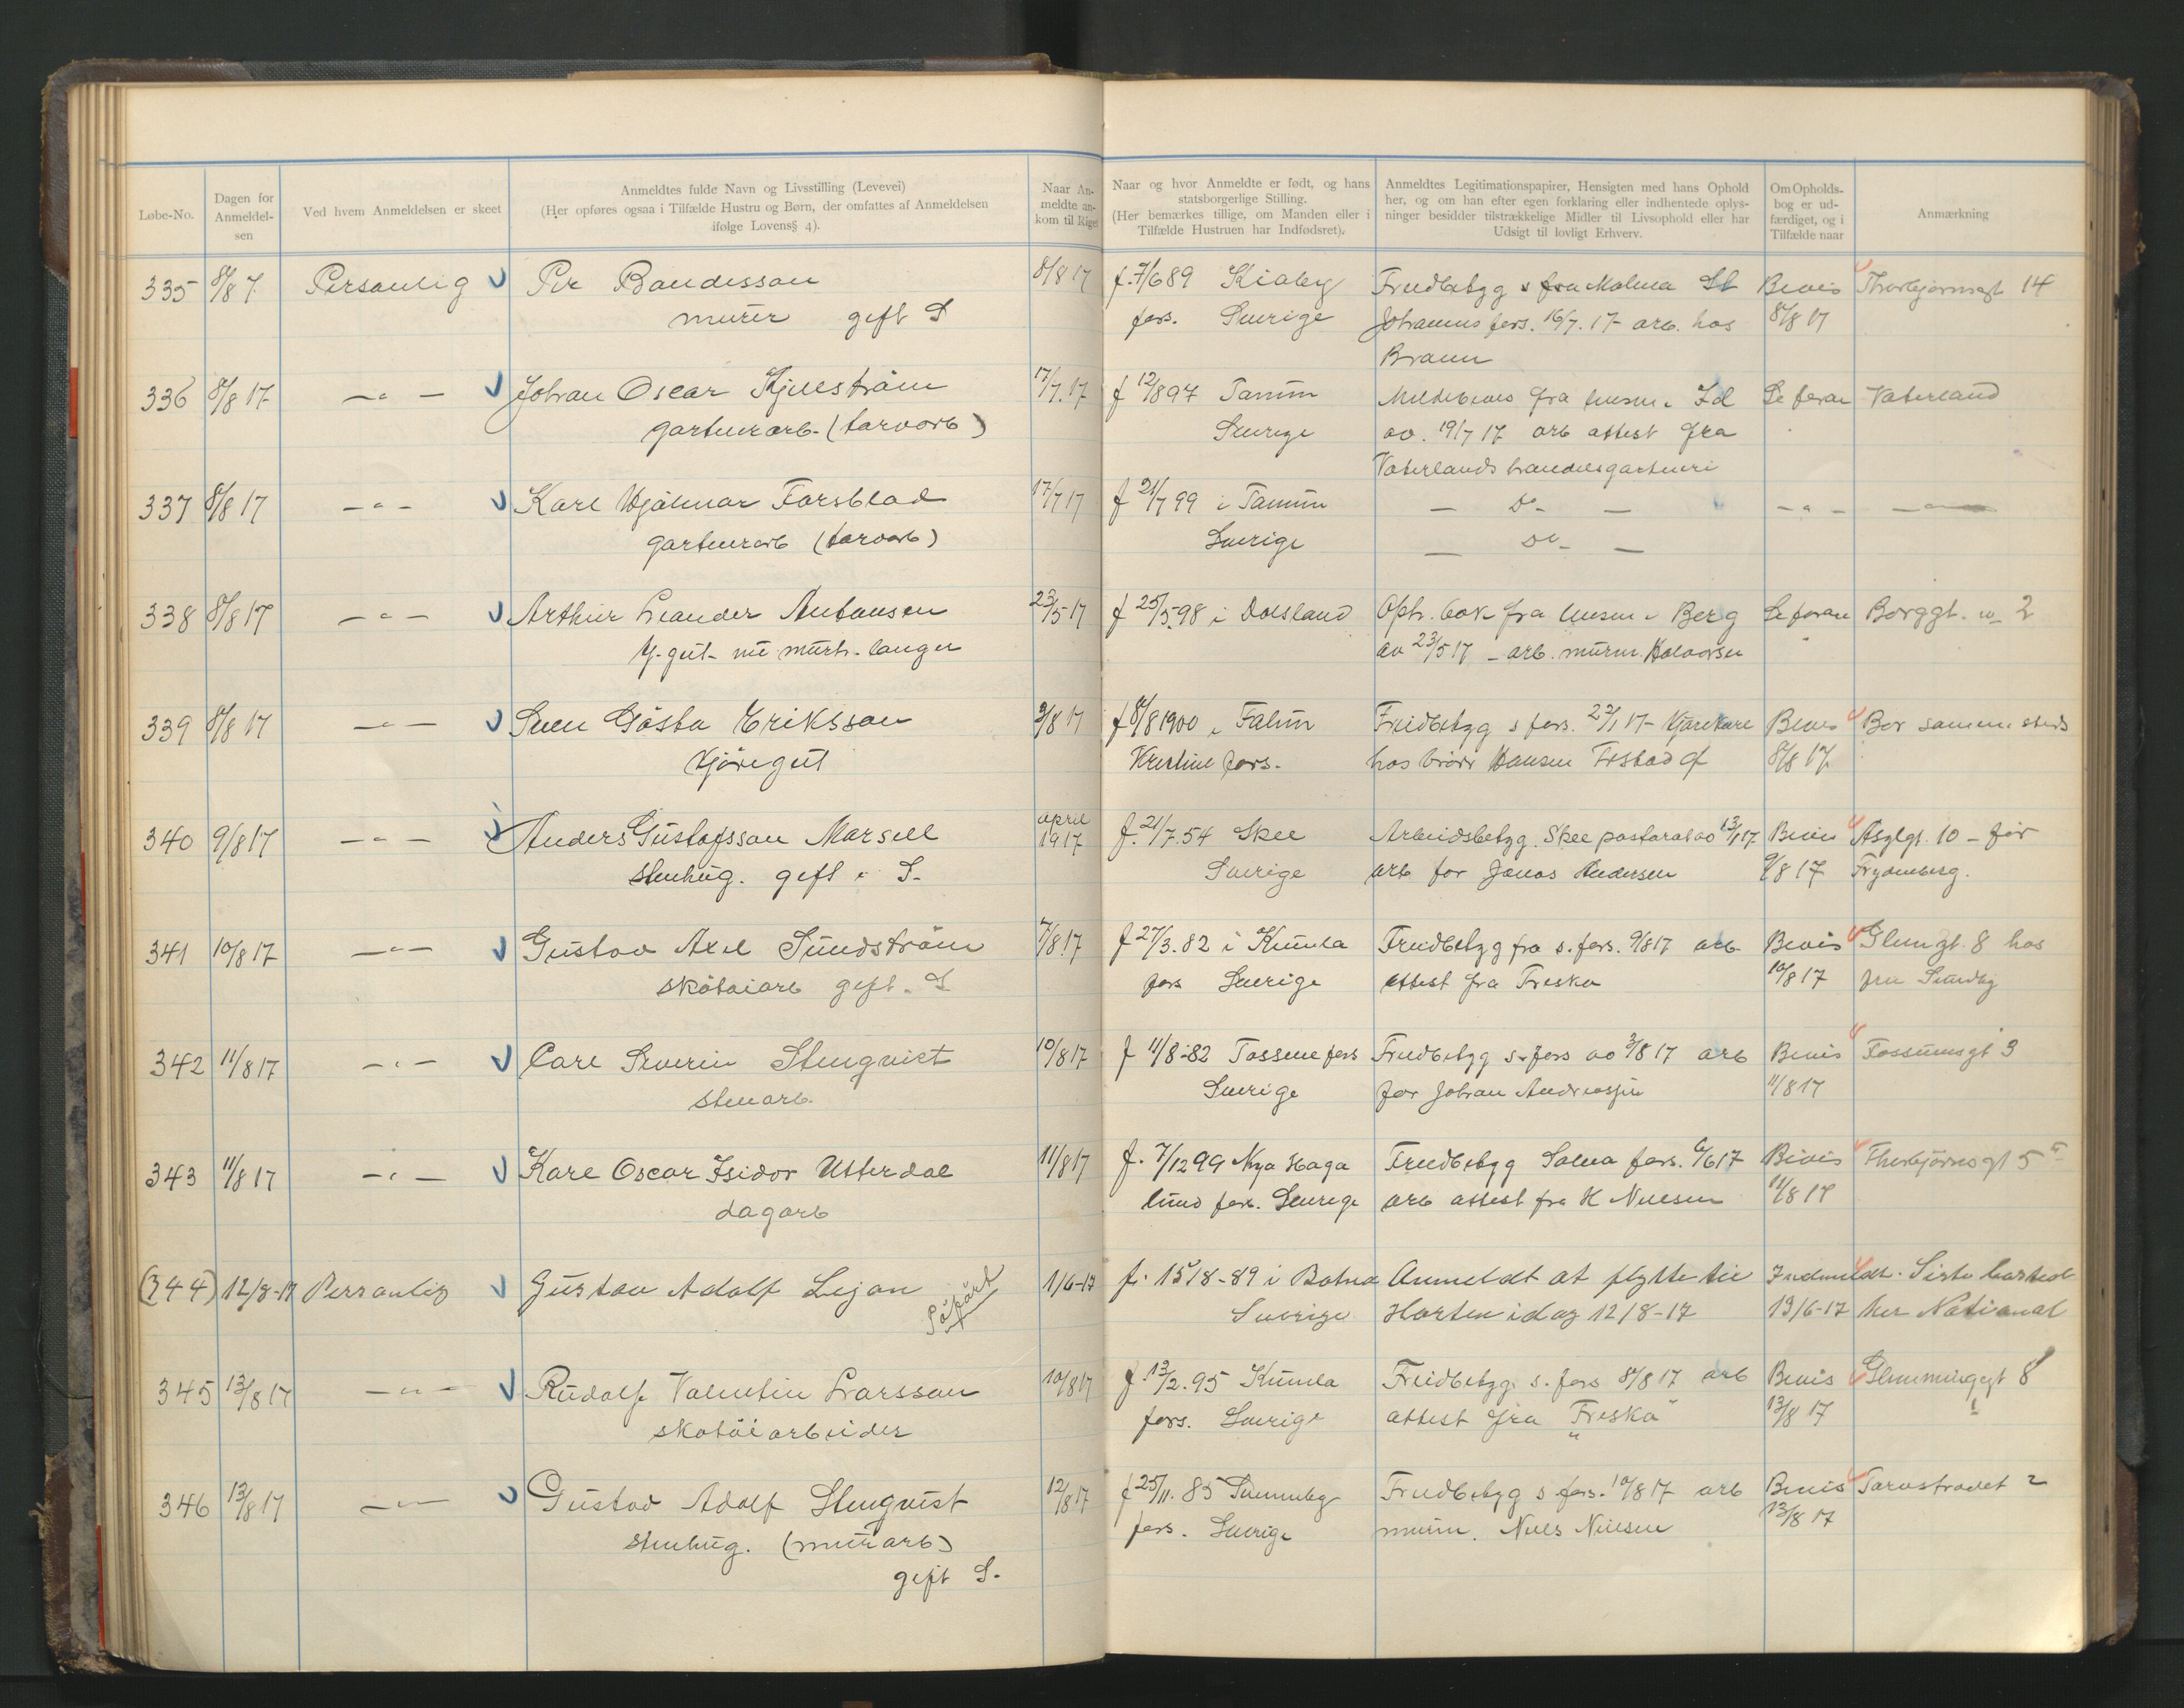 Løbe-No.
Dagen for
Anmeldel-
sen
Ved hvem Anmeldelsen er skeet
Anmeldtes fulde Navn og Livsstilling (Levevei)
(Her opføres ogsaa i Tilfælde Hustru og Børn, der omfattes af Anmeldelsen
ifølge Lovens § 4).
Naar An-
meldte an-
kom til Riget
Naar og hvor Anmeldte er født, og hans
statsborgerlige Stilling.
(Her bemærkes tillige, om Manden eller i
Tilfælde Hustruen har Indfødsret).
Anmeldtes Legitimationspapirer, Hensigten med hans Ophold
her, og om han efter egen forklaring eller indhentede oplys-
ninger besidder tilstrækkelige Midler til Livsophold eller har
Udsigt til lovligt Erhverv.
Om Opholds-
bog er ud-
færdiget, og i
Tilfælde naar
Anmærkning
335 8/8 7. Personlig Per Bondesson 8/8 17 f. 7/6 89 Kiaby Fredbetyg s fra Malmø St Bevis Thorbjørnsgt 14
murer gift S fors. Sverige Johannes fors. 16/7. 17 - arb. hos 8/8 17
Braun
336 8/8 17 - " - Johan Oscar Kjellström 17/7. 17 f 12/8 97 Tanum Meldebevis fra lensm. i Id Se foran Vaterland
gartnerarb. (torvarb) Sverige av. 19/7 17 arb attest fra
Vaterlands handelsgartneri
337 8/8 17 - " - Karl Hjalmar Forsblad 17/7 17 f 21/7 99 i Tanum - Do - - " - - " -
gartnerarb (torvarb) Sverige - Do -
338 8/8 17 - " - Arthur Leander Antonsen 23/5 17 f 25/5. 98 i Dalsland Oph. bok fra lensm i Berg Se foran Borggt. 2
av 23/5 17 - arb. murm. Halvorsen
339 8/8 17 - " - Sven Gösta Eriksson 3/8 17 f 8/8 1900 i Falun Bevis Bor samme steds
Kjøregut Kristine fors. hos brødr Hansen 8/8 17
340 9/8 17 - " - Anders Gustafsson Marsell april 1917 f. 21/7. 54 Skee Arbeidsbetyg. Skee pastorat Bevis Asylgt. 10 - før
stenhug. gift i S. Sverige arb for Jonas Andersen 9/8 17 Frydenberg.
341 10/8 17 - " - Gustav Axel Sundström 7/8. 17 f 27/3. 82 i Kumla Fredbetyg fra s. fors. 9/8 17 arb Bevis Glemgt. 8 hos
skotøiarb gift. S fors Sverige attest fra Freska 10/8 17 fru Sundby
342 11/8 17 - " - Carl Severin Stenqvist 10/8 17 f 11/8 - 82 Tossene fors Fredbetyg s. fors av 3/8 17 arb Bevis Fossumsgt 3
stenarb. Sverige for Johan Andreassen 11/8 17
343 11/8 17 - " - Karl Oscar Isidor Utterdal 11/8 17 f. 7/12 99 Nya Haga Fredbetyg Solna fors. 6/6 17 Bevis Thorbjørnsgt 5
dagarb lund fors. Sverige arb attest fra H Nielsen 11/8 17
(344) 12/8-17 Personlig Gustav Adolf Lejon 1/6-17 f. 15/8-89 i Botna Anmeldt at flytte til Indmeldt. Siste bosted
Sverige Horten idag 12/8-17 13/6-17 her National
345 13/8 17 - " - Rudolf Valentin Larsson 10/8 17 f. 13/2. 95 Kumla Fredbetyg s. fors 8/8 17 arb Bevis Glemmingegt 8
skotøiarbeider fors. Sverige attest fra "Freska" 13/8 17
346 13/8 17 - " - Gustav Adolf Stenqvist 12/8 17 f 25/11. 85 Fredbetyg s fors. 10/8 17 arb Bevis Torvstrædet 2
stenhug. (murarb) fors. Sverige murm. Nils Nilsen 13/8 17
gift S.